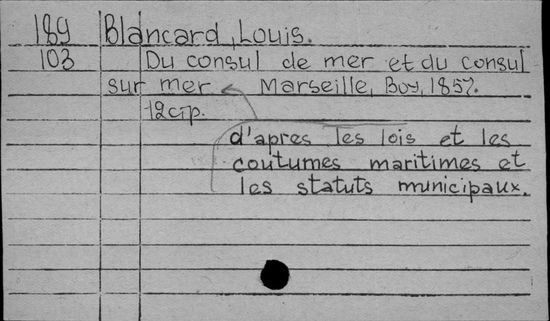 189 Blancard, Louis.
103 Du consul de mer et du consul
sur mer Marseille, Boy, 1857.
12 стр.
d'apres les lois et les
coutumes maritimes et
les statuts municipaux.